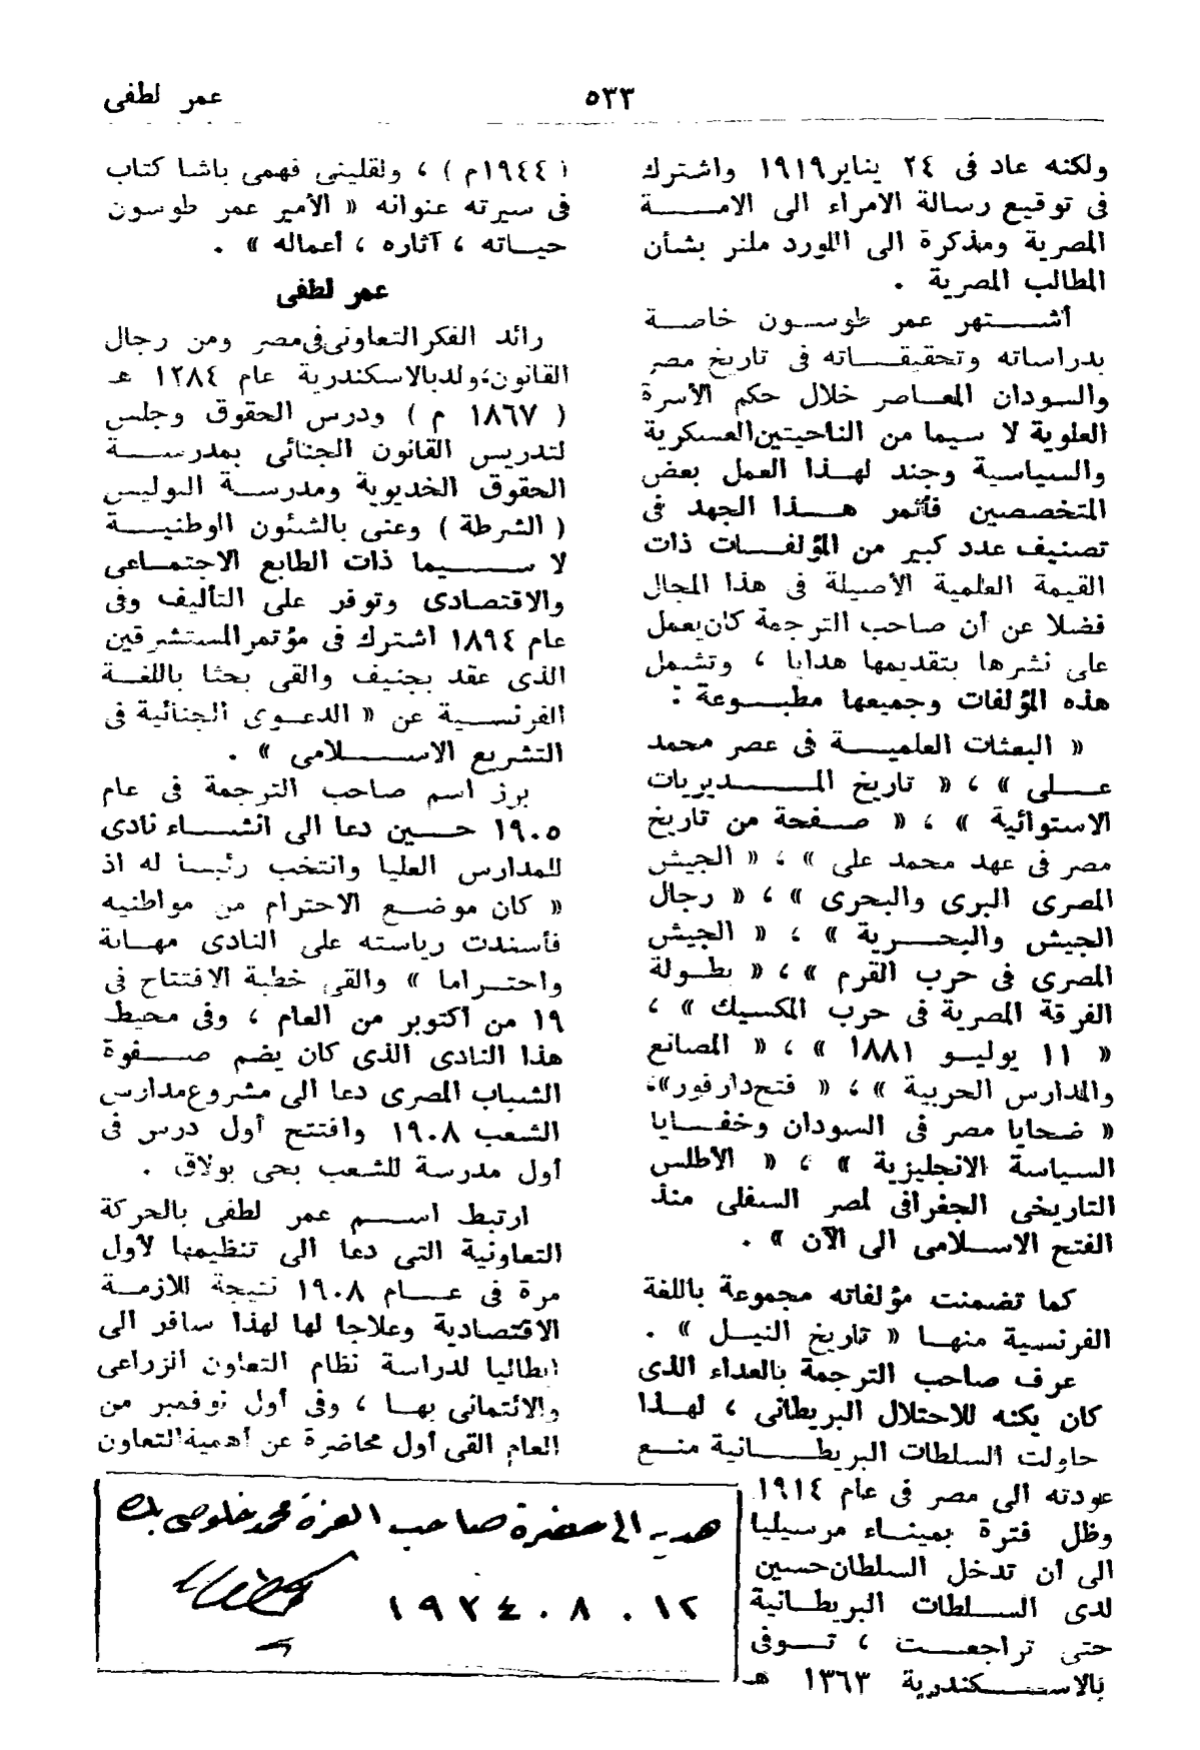 عمر لطفى
٥٣٣
ولكنه عاد فى ٢٤ يناير ١٩١٩ واشترك
فى توقيع رسالة الامراء الى الامـــة
المصرية ومذكرة الى اللورد ملنر بشأن
المطالب المصرية .
أشـــتهر عمر طوسـون خاصـة
بدراساته وتحقيقـــاته فى تاريخ مصر
والسودان المعـاصر خلال حكم الأسرة
العلوية لا سيما من الناحيتين العسكرية
والسياسية وجند لهـذا العمل بعض
المتخصصين فأثمر هـــذا الجهد فى
تصنيف عدد كبير من المؤلفـــات ذات
القيمة العلمية الأصيلة فى هذا المجال
فضلا عن أن صاحب الترجمة كان يعمل
على نشرها بتقديمها هدايا ، وتشمل
هذه المؤلفات وجميعها مطبـــوعة :
« البعثات العلميـــة فى عصر محمد
عـــلى » ، « تاريخ المـــديريات
الاستوائية » ، « صـفحة من تاريخ
مصر فى عهد محمد على » ، « الجيش
المصرى البرى والبحرى » ، « رجال
الجيش والبحـــرية » ، « الجيش
المصرى فى حرب القرم » ، « بطـولة
الفرقة المصرية فى حرب المكسيك » ،
« ١١ يوليـو ١٨٨١ » ، « المصانع
والمدارس الحربية » ، « فتح دارفور »،
« ضحايا مصر فى السودان وخفـــايا
السياسة الانجليزية » ، « الأطلس
التاريخى الجغرافى لمصر السفلى منذ
الفتح الاسـلامى الى الآن » .
كما تضمنت مؤلفاته مجموعة باللغة
الفرنسية منهـا « تاريخ النيـل » .
عرف صاحب الترجمة بالعداء الذى
كان يكنه للاحتلال البريطانى ، لهـذا
حاولت السلطات البريطـــانية منـع
عودته الى مصر فى عام ١٩١٤
وظل فترة بمينـاء مرسيليا
الى أن تدخل السلطان حسين
لدى السـلطات البريطـانية
حتى تراجعـــت ، تـوفى
بالاســـكندرية ١٣٦٣ هـ
( ١٩٤٤م ) ، ولقلينى فهمى باشا كتاب
فى سيرته عنوانه « الأمير عمر طوسون
حيـاته ، آثاره ، أعماله » .
عمر لطفى
رائد الفكر التعاونى فى مصر ومن رجال
القانون؛ ولد بالاسكندرية عام ١٢٨٤ هـ
( ١٨٦٧ م ) ودرس الحقوق وجلس
لتدريس القانون الجنائى بمدرســـة
الحقوق الخديوية ومدرسـة البوليس
( الشرطة ) وعنى بالشئون الوطنيـــة
لا ســـيما ذات الطابع الاجتمـاعى
والاقتصادى وتوفر على التأليف وفى
عام ١٨٩٤ اشترك فى مؤتمر المستشرقين
الذى عقد بجنيف والقى بحثا باللغـة
الفرنسـية عن « الدعـوى الجنائية فى
التشريع الاســـلامى » .
برز اسم صاحب الترجمة فى عام
١٩٠٥ حـــين دعا الى انشـــاء نادى
للمدارس العليا وانتخب رئيسا له اذ
« كان موضـع الاحترام من مواطنيه
فأسندت رياسته على النادى مهـابة
واحتـراما » والقى خطبة الافتتاح فى
١٩ من أكتوبر من العام ، وفى محيط
هذا النادى الذى كان يضم صـفوة
الشباب المصرى دعا الى مشروع مدارس
الشعب ١٩٠٨ وافتتح أول درس فى
أول مدرسة للشعب بحى بولاق .
ارتبط اسـم عمر لطفى بالحركة
التعاونية التى دعا الى تنظيمها لأول
مرة فى عـــام ١٩٠٨ نتيجة للازمـة
الاقتصادية وعلاجا لها لهذا سافر الى
ايطاليا لدراسة نظام التعاون الزراعى
والائتمانى بهـا ، وفى أول نوفمبر من
العام القى أول محاضرة عن أهمية التعاون
هدية الى حضرة صاحب العزة محمد خلوصى بك
١٢ . ٨ . ١٩٣٤